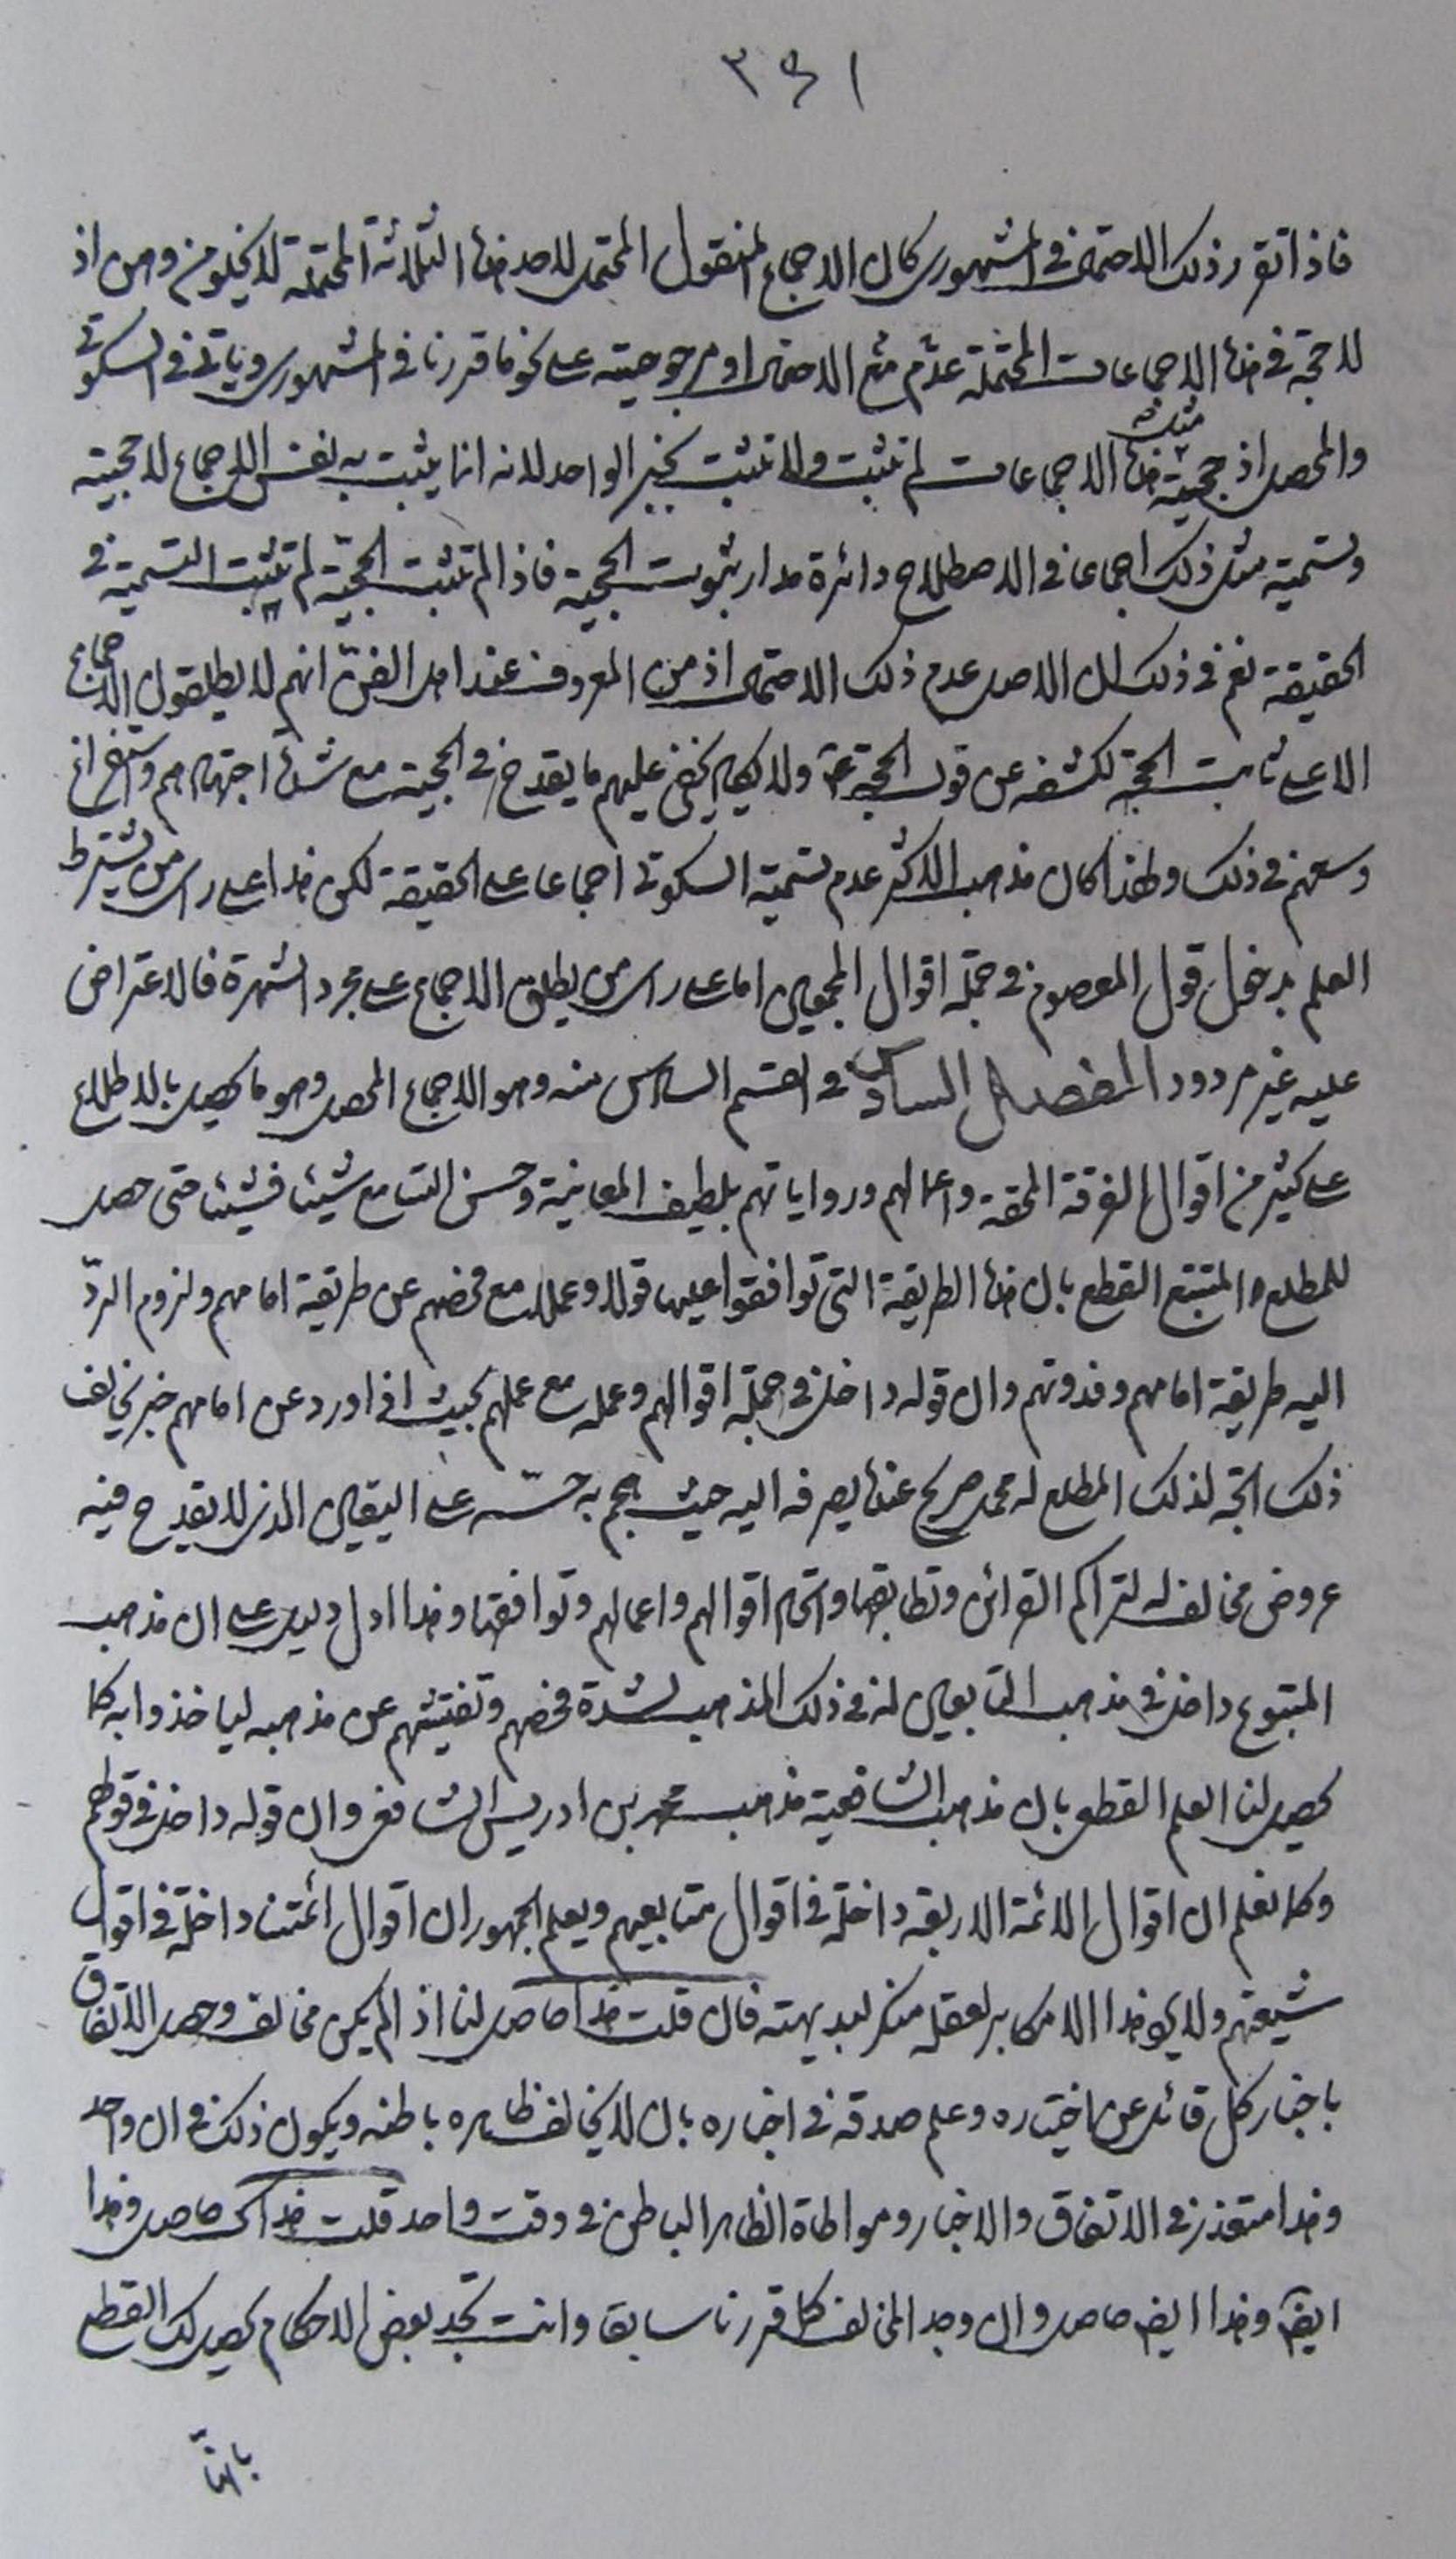 ٣٤١
فاذا تقرر ذلك الاحتمال في المشهوري كان الاجماع المنقول المحتمل لاحد هذه الثلاثة المحتملة لا يخلو من وهن اذ
لا حجة في هذه الاجماعات المحتملة عدم مع الاحتمال او مرجوحيته على نحو ما قررنا في المشهوري وياتي في السكوتي
والمحصل اذ حجية مثل هذه الاجماعات لم تثبت ولا تثبت بخبر الواحد لانه انما يثبت به نفس الاجماع لا حجيته
وتسمية مثل ذلك اجماعا في الاصطلاح دائرة مدار ثبوت الحجية فاذا لم تثبت الحجية لم تثبت التسمية في
الحقيقة نعم في ذلك ان الاصل عدم ذلك الاحتمال اذ من المعروف عند اهل الفن انهم لا يطلقون الاجماع
الا على ثابت الحجة لكشفه عن قول الحجة ع ولا يكاد يخفى عليهم ما يقدح في الحجية مع شدة اجتهادهم واستفراغ
وسعهم في ذلك ولهذا كان مذهب الاكثر عدم تسمية السكوتي اجماعا على الحقيقة لكن هذا على راي من يشترط
العلم بدخول قول المعصوم في جملة اقوال المجمعين اما على راي من يطلق الاجماع على مجرد الشهرة فالاعتراض
عليه غير مردود الفصل السادس في القسم السادس منه وهو الاجماع المحصل وهو ما يحصل بالاطلاع
على كثير من اقوال الفرقة المحقة واعمالهم ورواياتهم بلطيف المعاينة وحسن التسامع شيئا فشيئا حتى حصل
للمطلع المتتبع القطع بان هذه الطريقة التي توافقوا عليها قولا وعملا مع فحصهم عن طريقة امامهم ولزوم الردّ
اليه طريقة امامهم وقدوتهم وان قوله داخل في جملة اقوالهم وعمله مع عملهم بحيث اذا ورد عن امامهم خبر يخالف
ذلك اتجه لذلك المطلع له محمل صريح عنده يصرفه اليه حيث هجم به حسّه على اليقين الذي لا يقدح فيه
عروض مخالف له لتراكم القرائن وتطابقها واتحاد اقوالهم واعمالهم وتوافقها وهذا ادل دليل على ان مذهب
المتبوع داخل في مذهب التابعين له في ذلك المذهب لشدة فحصهم وتفتيشهم عن مذهبه لياخذوا به كما
يحصل لنا العلم القطعي بان مذهب الشافعية مذهب محمد بن ادريس الشافعي وان قوله داخل في قولهم
وكما نعلم ان اقوال الائمة الاربعة داخلة في اقوال متابعيهم ويعلم الجمهور ان اقوال ائمتنا داخلة في اقوال
شيعتهم ولا يدفع هذا الا مكابر لعقله منكر لبديهته فان قلت هذا حاصل لنا اذا لم يكن مخالف وحصل الاتفاق
باخبار كل قائل عن اختياره وعلم صدقه في اخباره بان لا يخالف ظاهره باطنه ويكون ذلك في ان واحد
وهذا متعذر في الاتفاق والاخبار ومواطاة الظاهر الباطن في وقت واحد قلت هذاك حاصل وهذا
ايض وهذا ايض حاصل وان وجد المخالف كما قررنا سابقا وانت تجد بعض الاحكام يحصل لك القطع
بانّه